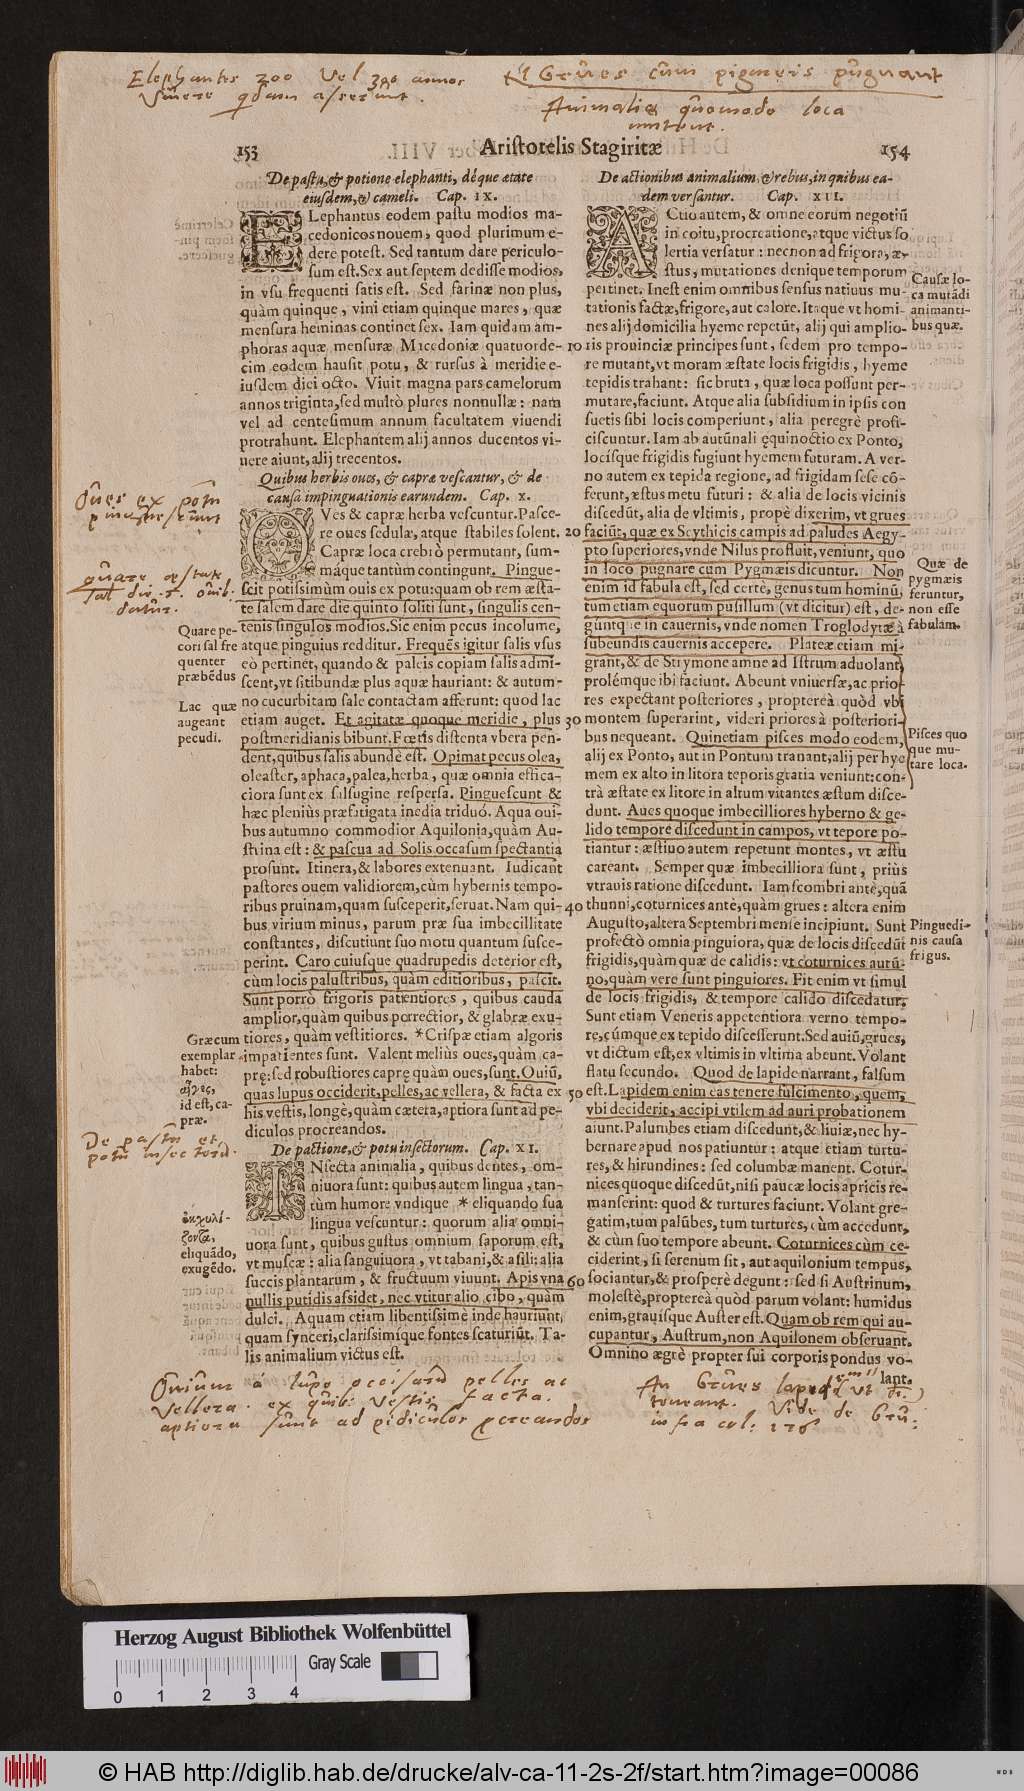 Elephantes 200 vel 300 annos
Vivere qdam asserunt.
Grues cum pigmeis pugnant
Animalia quomodo loca
mutent.
153
Aristotelis Stagiritæ
154
De pastu, & potione elephanti, déque ætate
eiusdem, & cameli. Cap. IX.
ELephantus eodem pastu modios ma-
cedonicos nouem, quod plurimum e-
dere potest. Sed tantum dare periculo-
sum est. Sex aut septem dedisse modios,
in vsu frequenti satis est. Sed farinæ non plus,
quàm quinque, vini etiam quinque mares, quæ
mensura heminas continet sex. Iam quidam am-
phoras aquæ mensuræ Macedoniæ quatuorde-
cim eodem hausit potu, & rursus à meridie e-
iusdem diei octo. Viuit magna pars camelorum
annos triginta, sed multò plures nonnullæ: nam
vel ad centesimum annum facultatem viuendi
protrahunt. Elephantem alij annos ducentos vi-
uere aiunt, alij trecentos.
Quibus herbis oues, & capræ vescantur, & de
causa impinguationis earundem. Cap. X.
OVes & capræ herba vescuntur. Pasce-
re oues sedulæ, atque stabiles solent.
Capræ loca crebrò permutant, sum-
máque tantùm contingunt. Pingue-
scit potissimùm ouis ex potu: quam ob rem æsta-
te salem dare die quinto soliti sunt, singulis cen-
tenis singulos modios. Sic enim pecus incolume,
atque pinguius redditur. Frequẽs igitur salis vsus
eò pertinet, quando & paleis copiam salis admi-
scent, vt sitibundæ plus aquæ hauriant: & autum-
no cucurbitam sale contactam afferunt: quod lac
etiam auget. Et agitatæ quoque meridie, plus
postmeridianis bibunt. Fœtis distenta vbera pen-
dent, quibus salis abundè est. Opimat pecus olea,
oleaster, aphaca, palea, herba, quæ omnia effica-
ciora sunt ex salsugine respersa. Pinguescunt &
hæc pleniùs præfatigata inedia triduò. Aqua oui-
bus autumno commodior Aquilonia, quàm Au-
strina est: & pascua ad Solis occasum spectantia
prosunt. Itinera, & labores extenuant. Iudicant
pastores ouem validiorem, cùm hybernis tempo-
ribus pruinam, quam susceperit, seruat. Nam qui-
bus virium minus, parum præ sua imbecillitate
constantes, discutiunt suo motu quantum susce-
perint. Caro cuiusque quadrupedis deterior est,
cùm locis palustribus, quàm editioribus, pascit.
Sunt porrò frigoris patientiores, quibus cauda
amplior, quàm quibus porrectior, & glabræ exu-
tiores, quàm vestitiores. *Crispæ etiam algoris
impatientes sunt. Valent meliùs oues, quàm ca-
pręː sed robustiores caprę quàm oues, sunt. Ouiũ,
quas lupus occiderit, pelles, ac vellera, & facta ex
his vestis, longè, quàm cætera, aptiora sunt ad pe-
diculos procreandos.
De pactione, & potu insectorum. Cap. XI.
INsecta animalia, quibus dentes, om-
niuora sunt: quibus autem lingua, tan-
tùm humore vndique * eliquando sua
lingua vescuntur: quorum alia omni-
uora sunt, quibus gustus omnium saporum est,
vt muscæ: alia sanguiuora, vt tabani, & asili: alia
succis plantarum, & fructuum viuunt. Apis vna
nullis putidis assidet, nec vtitur alio cibo, quàm
dulci. Aquam etiam libentissimè inde hauriunt,
quam synceri, clarissimique fontes scaturiũt. Ta-
lis animalium victus est.
Oues ex potu
pinguescunt
quare æstate
sal
datur.
Quare pe-
cori sal fre
quenter
præbẽdus
Lac quæ
augeant
pecudi.
Græcum
exemplar
habet:
αἶγες,
id est, ca-
præ.
De pastu et
potu insectorũ.
ἐκχυλί-
ζοντα,
eliquãdo,
exugẽdo.
10
20
30
40
50
60
De actionibus animalium & rebus, in quibus ea-
dem versantur. Cap. XII.
ACtio autem, & omne eorum negotiũ
in coitu, procreatione, atque victus so
lertia versatur: necnon ad frigora, æ-
stus, mutationes denique temporum
pertinet. Inest enim omnibus sensus natiuus mu-
tationis factæ, frigore, aut calore. Itaque vt homi-
nes alij domicilia hyeme repetũt, alij qui amplio-
ris prouinciæ principes sunt, sedem pro tempo-
re mutant, vt moram æstate locis frigidis, hyeme
tepidis trahant: sic bruta, quæ loca possunt per-
mutare, faciunt. Atque alia subsidium in ipsis con
suetis sibi locis comperiunt, alia peregrè profi-
ciscuntur. Iam ab autũnali ęquinoctio ex Ponto,
locísque frigidis fugiunt hyemem futuram. A ver-
no autem ex tepida regione, ad frigidam sese cõ-
ferunt, æstus metu futuri: & alia de locis vicinis
discedũt, alia de vltimis, propè dixerim, vt grues
faciũt, quæ ex Scythicis campis ad paludes Aegy-
pto superiores, vnde Nilus profluit, veniunt, quo
in loco pugnare cum Pygmæis dicuntur. Non
enim id fabula est, sed certè, genus tum hominũ,
tum etiam equorum pusillum (vt dicitur) est, de-
guntque in cauernis, vnde nomen Troglodytæ à
subeundis cauernis accepere. Plateæ etiam mi-
grant, & de Strymone amne ad Istrum aduolant,
prolémque ibi faciunt. Abeunt vniuersæ, ac prio-
res expectant posteriores, proptereà quòd vbi
montem superarint, videri priores à posteriori-
bus nequeant. Quinetiam pisces modo eodem,
alij ex Ponto, aut in Pontum tranant, alij per hye
mem ex alto in litora teporis gratia veniunt: con-
trà æstate ex litore in altum vitantes æstum disce-
dunt. Aues quoque imbecilliores hyberno & ge-
lido tempore discedunt in campos, vt tepore po-
tiantur: æstiuo autem repetunt montes, vt æstu
careant. Semper quæ imbecilliora sunt, priùs
vtrauis ratione discedunt. Iam scombri antè, quã
thunni, coturnices antè, quàm grues: altera enim
Augusto, altera Septembri mense incipiunt. Sunt
profectò omnia pinguiora, quæ de locis discedũt
frigidis, quàm quæ de calidis: vt coturnices autũ-
no, quàm vere sunt pinguiores. Fit enim vt simul
de locis frigidis, & tempore calido discedatur.
Sunt etiam Veneris appetentiora verno tempo-
re, cúmque ex tepido discesserunt. Sed auiũ, grues,
vt dictum est, ex vltimis in vltima abeunt. Volant
flatu secundo. Quod de lapide narrant, falsum
est. Lapidem enim eas tenere fulcimento, quem,
vbi deciderit, accipi vtilem ad auri probationem
aiunt. Palumbes etiam discedunt, & liuiæ, nec hy-
bernare apud nos patiuntur: atque etiam turtu-
res, & hirundines: sed columbæ manent. Cotur-
nices quoque discedũt, nisi paucæ locis apricis re-
manserint: quod & turtures faciunt. Volant gre-
gatim, tum palũbes, tum turtures, cùm accedunt,
& cùm suo tempore abeunt. Coturnices cùm ce-
ciderint, si serenum sit, aut aquilonium tempus,
sociantur, & prosperè degunt: sed si Austrinum,
molestè, proptereà quòd parum volant: humidus
enim, grauisque Auster est. Quam ob rem qui au-
cupantur, Austrum, non Aquilonem obseruant.
Omnino ægrè propter sui corporis pondus vo-
lant.
Causæ lo-
ca mutãdi
animanti-
bus quæ.
Quæ de
pygmæis
feruntur,
non esse
fabulam.
Pisces quo
que mu-
tare loca.
Pinguedi-
nis causa
frigus.
Ovium á lupo occisarũ pelles ac
Vellera. ex quib. Vestis facta.
aptiora sunt ad pediculos procreandos
An Grues lapid
teneant. Vide de Gru:
infra col: 176
Herzog August Bibliothek Wolfenbüttel
Gray Scale
0 1 2 3 4
© HAB http://diglib.hab.de/drucke/alv-ca-11-2s-2f/start.htm?image=00086